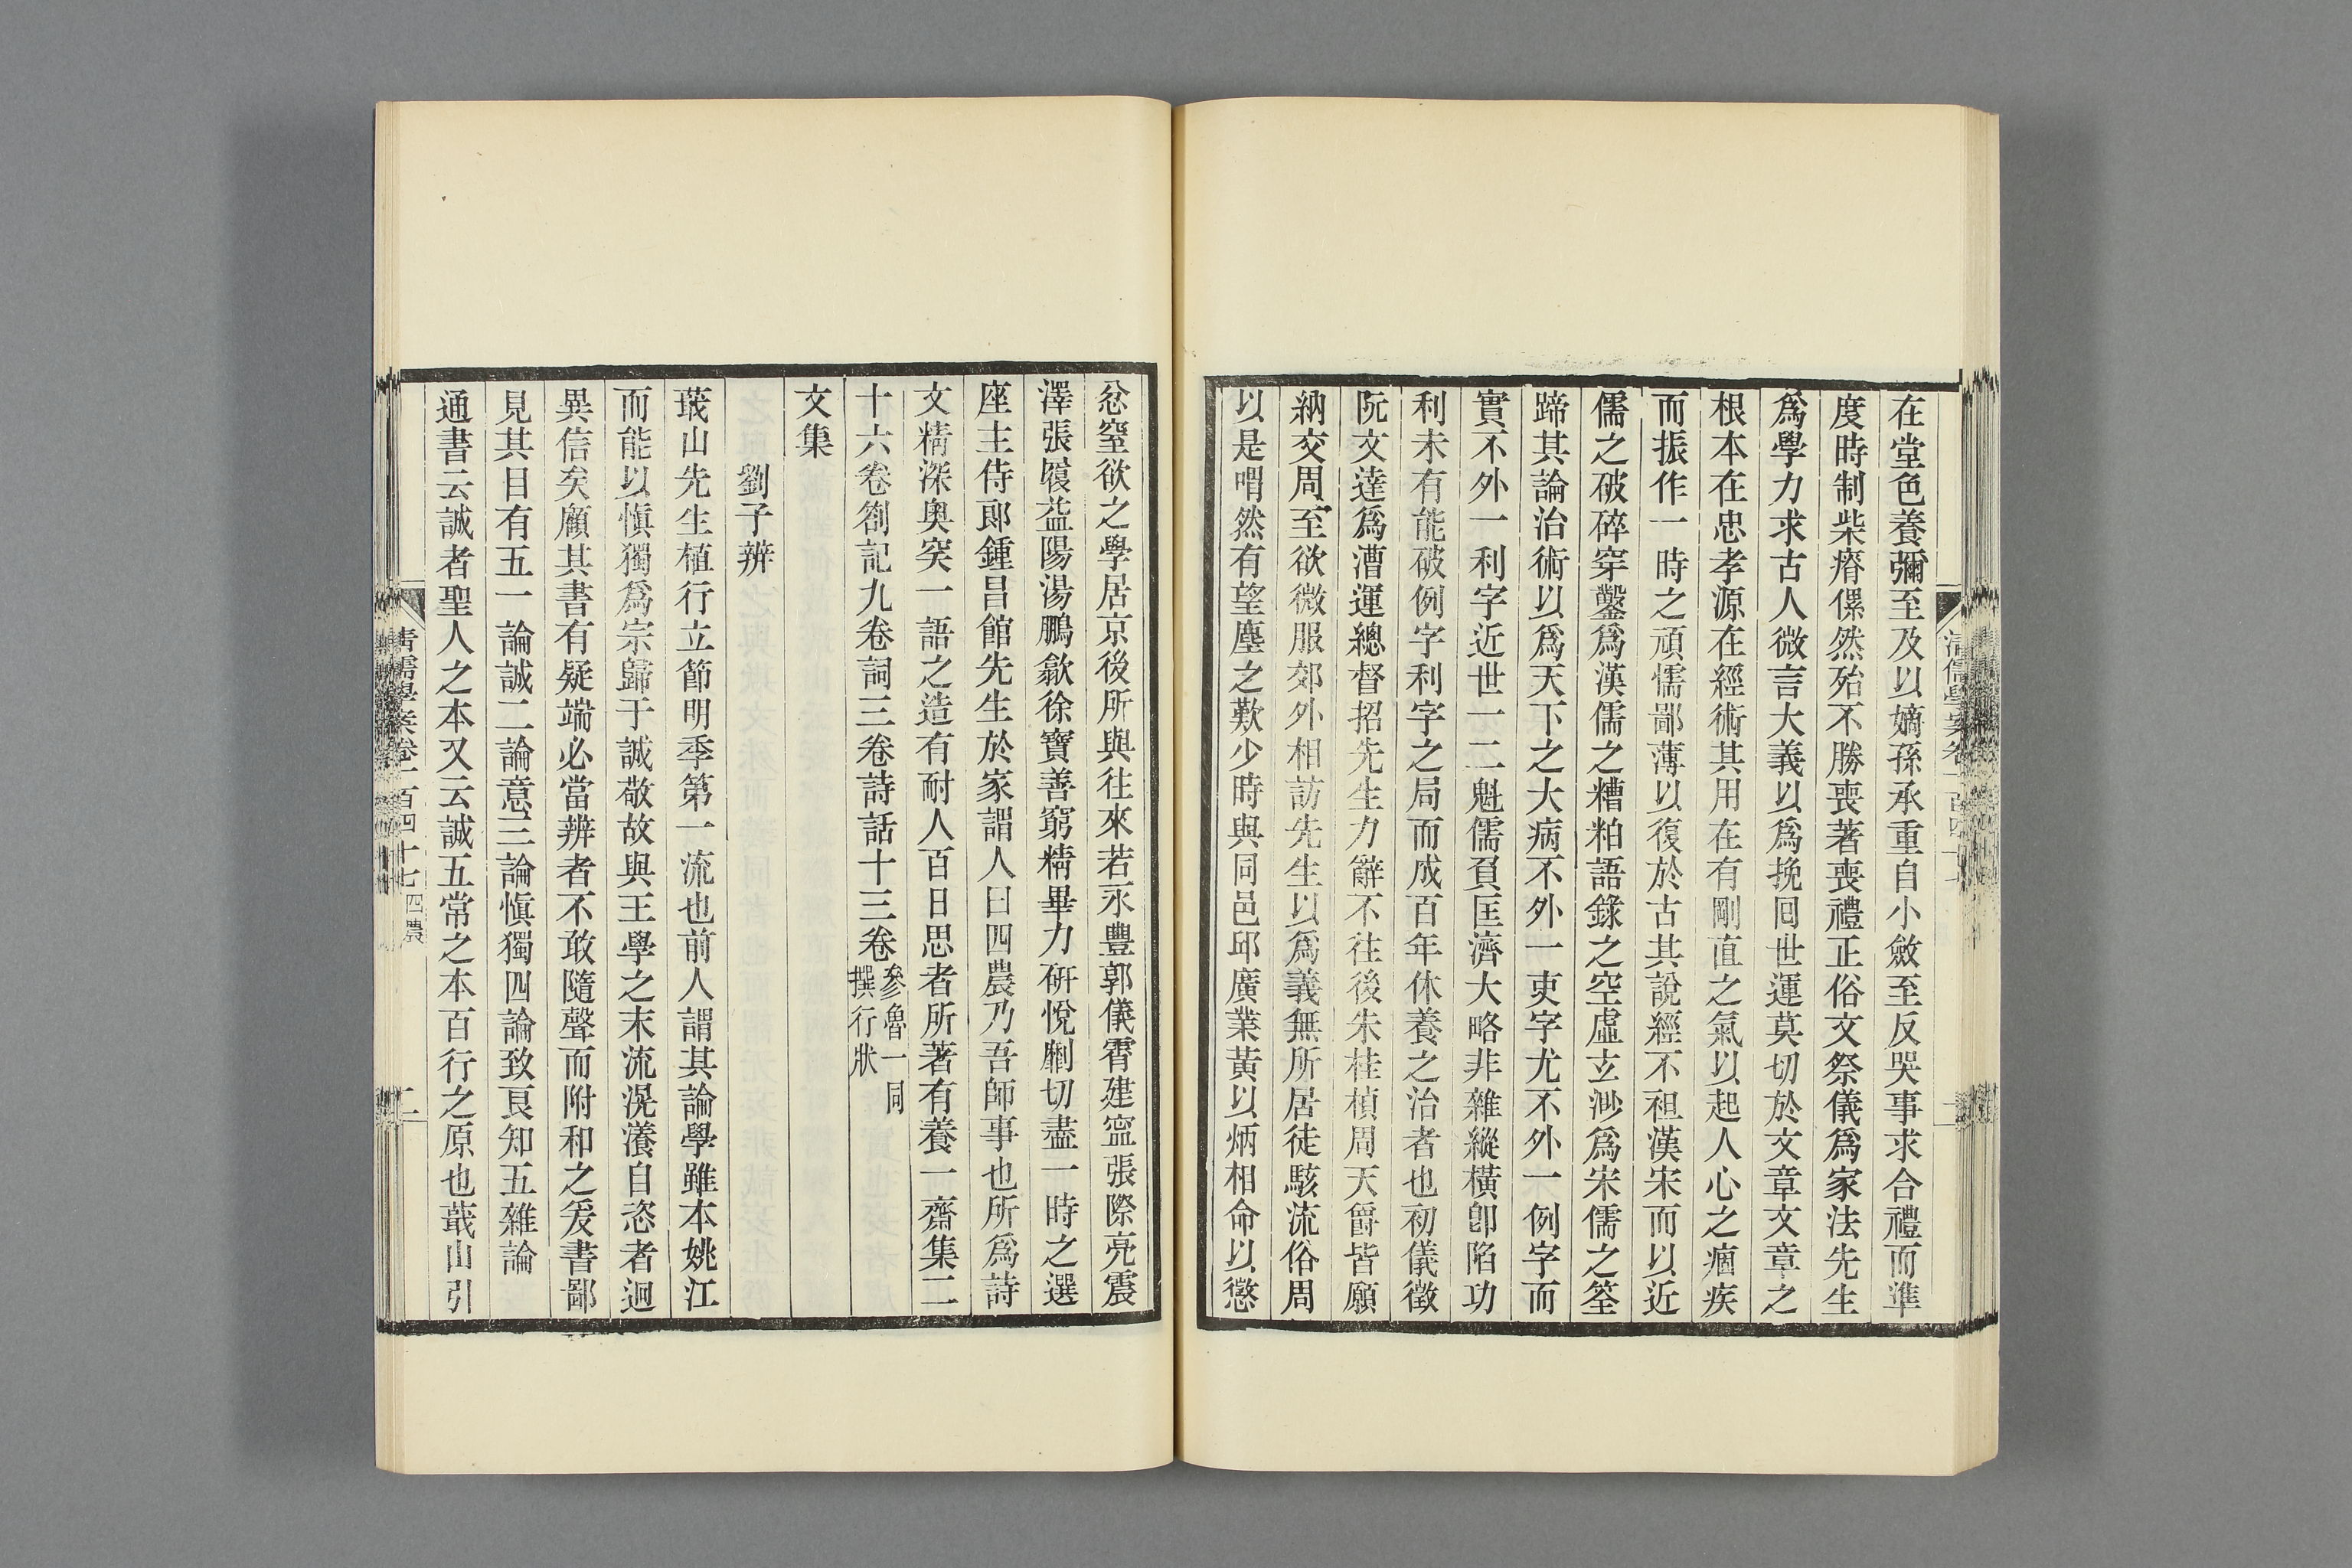 在堂色養彌至及以嫡孫承重自小斂至反哭事求合禮而準
度時制柴瘠傫然殆不勝喪著喪禮正俗文祭儀爲家法先生
爲學力求古人微言大義以爲挽囘世運莫切於文章文章之
根本在忠孝源在經術其用在有剛直之氣以起人心之痼疾
而振作一時之頑懦鄙薄以復於古其說經不袒漢宋而以近
儒之破碎穿鑿爲漢儒之糟粕語錄之空虛玄渺爲宋儒之筌
蹄其論治術以爲天下之大病不外一吏字尤不外一例字而
實不外一利字近世一二魁儒負匡濟大略非雜縱橫卽陷功
利未有能破例字利字之局而成百年休養之治者也初儀徵
阮文達爲漕運總督招先生力辭不往後朱桂楨周天爵皆願
納交周至欲微服郊外相訪先生以爲義無所居徒駭流俗周
以是喟然有望塵之歎少時與同邑邱廣業黃以炳相命以懲
忿窒欲之學居京後所與往來若永豐郭儀霄建寍張際亮震
澤張履益陽湯鵬歙徐寶善窮精畢力硏悅劘切盡一時之選
座主侍郎鍾昌館先生於家謂人曰四農乃吾師事也所爲詩
文精深奧突一語之造有耐人百日思者所著有養一齋集二
十六卷劄記九卷詞三卷詩話十三卷參魯一同
撰行狀
文集
劉子辨
蕺山先生植行立節明季第一流也前人謂其論學雖本姚江
而能以愼獨爲宗歸于誠敬故與王學之末流滉瀁自恣者迥
異信矣顧其書有疑端必當辨者不敢隨聲而附和之爰書鄙
見其目有五一論誠二論意三論愼獨四論致良知五雜論
通書云誠者聖人之本又云誠五常之本百行之原也蕺山引
清儒學案卷一百四十七 四農
二